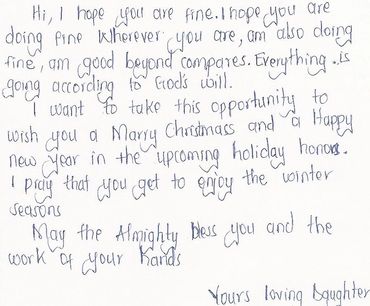 Hi, I hope you are fine. I hope you are
doing fine wherever you are, am also doing
fine, am good beyond compares. Everything is
going according to God's will.
I want to take this opportunity to
wish you a Marry Christmass and a Happy
new year in the upcoming holiday honors.
I pray that you get to enjoy the winter
seasons
May the Almighty bless you and the
work of your hands
Yours loving Daughter